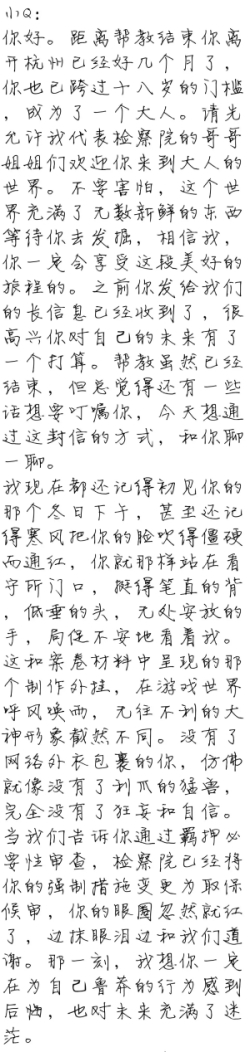 小Q：
你好。距离帮教结束你离
开杭州已经好几个月了，
你也已跨过十八岁的门槛
，成为了一个大人。请先
允许我代表检察院的哥哥
姐姐们欢迎你来到大人的
世界。不要害怕，这个世
界充满了无数新鲜的东西
等待你去发掘，相信我，
你一定会享受这段美好的
旅程的。之前你发给我们
的长信息已经收到了，很
高兴你对自己的未来有了
一个打算。帮教虽然已经
结束，但总觉得还有一些
话想要叮嘱你，今天想通
过这封信的方式，和你聊
一聊。
我现在都还记得初见你的
那个冬日下午，甚至还记
得寒风把你的脸吹得僵硬
而通红，你就那样站在看
守所门口，挺得笔直的背
，低垂的头，无处安放的
手，局促不安地看着我。
这和案卷材料中呈现的那
个制作外挂，在游戏世界
呼风唤雨，无往不利的大
神形象截然不同。没有了
网络外衣包裹的你，仿佛
就像没有了利爪的猛兽，
完全没有了狂妄和自信。
当我们告诉你通过羁押必
要性审查，检察院已经将
你的强制措施变更为取保
候审，你的眼圈忽然就红
了，边抹眼泪边和我们道
谢。那一刻，我想你一定
在为自己鲁莽的行为感到
后悔，也对未来充满了迷
茫。